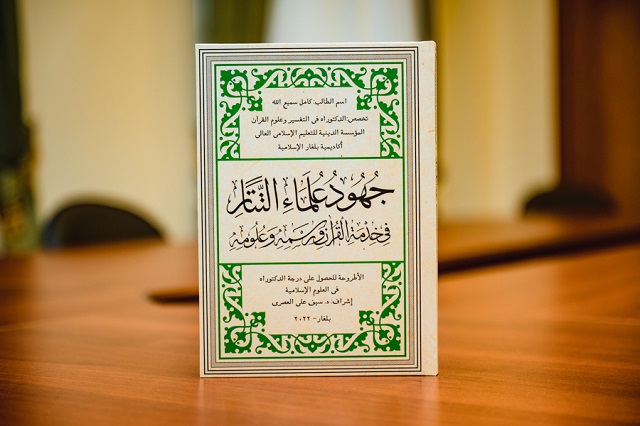 اسم الطالب: كامل سميع الله
تخصص: الدكتوراه في التفسير وعلوم القرآن
المؤسسة الدينية للتعليم الإسلامي العالي
أكاديمية بلغار الإسلامية
جُهُودُ عُلَمَاءِ التَّتَارِ
فِي خِدْمَةِ القُرْآنِ وَرَسْمِهِ وَعُلُومِهِ
الأطروحة للحصول على درجة الدكتوراه
في العلوم الإسلامية
إشراف: د. سيف علي العصري
بلغار - ٢٠٢٢